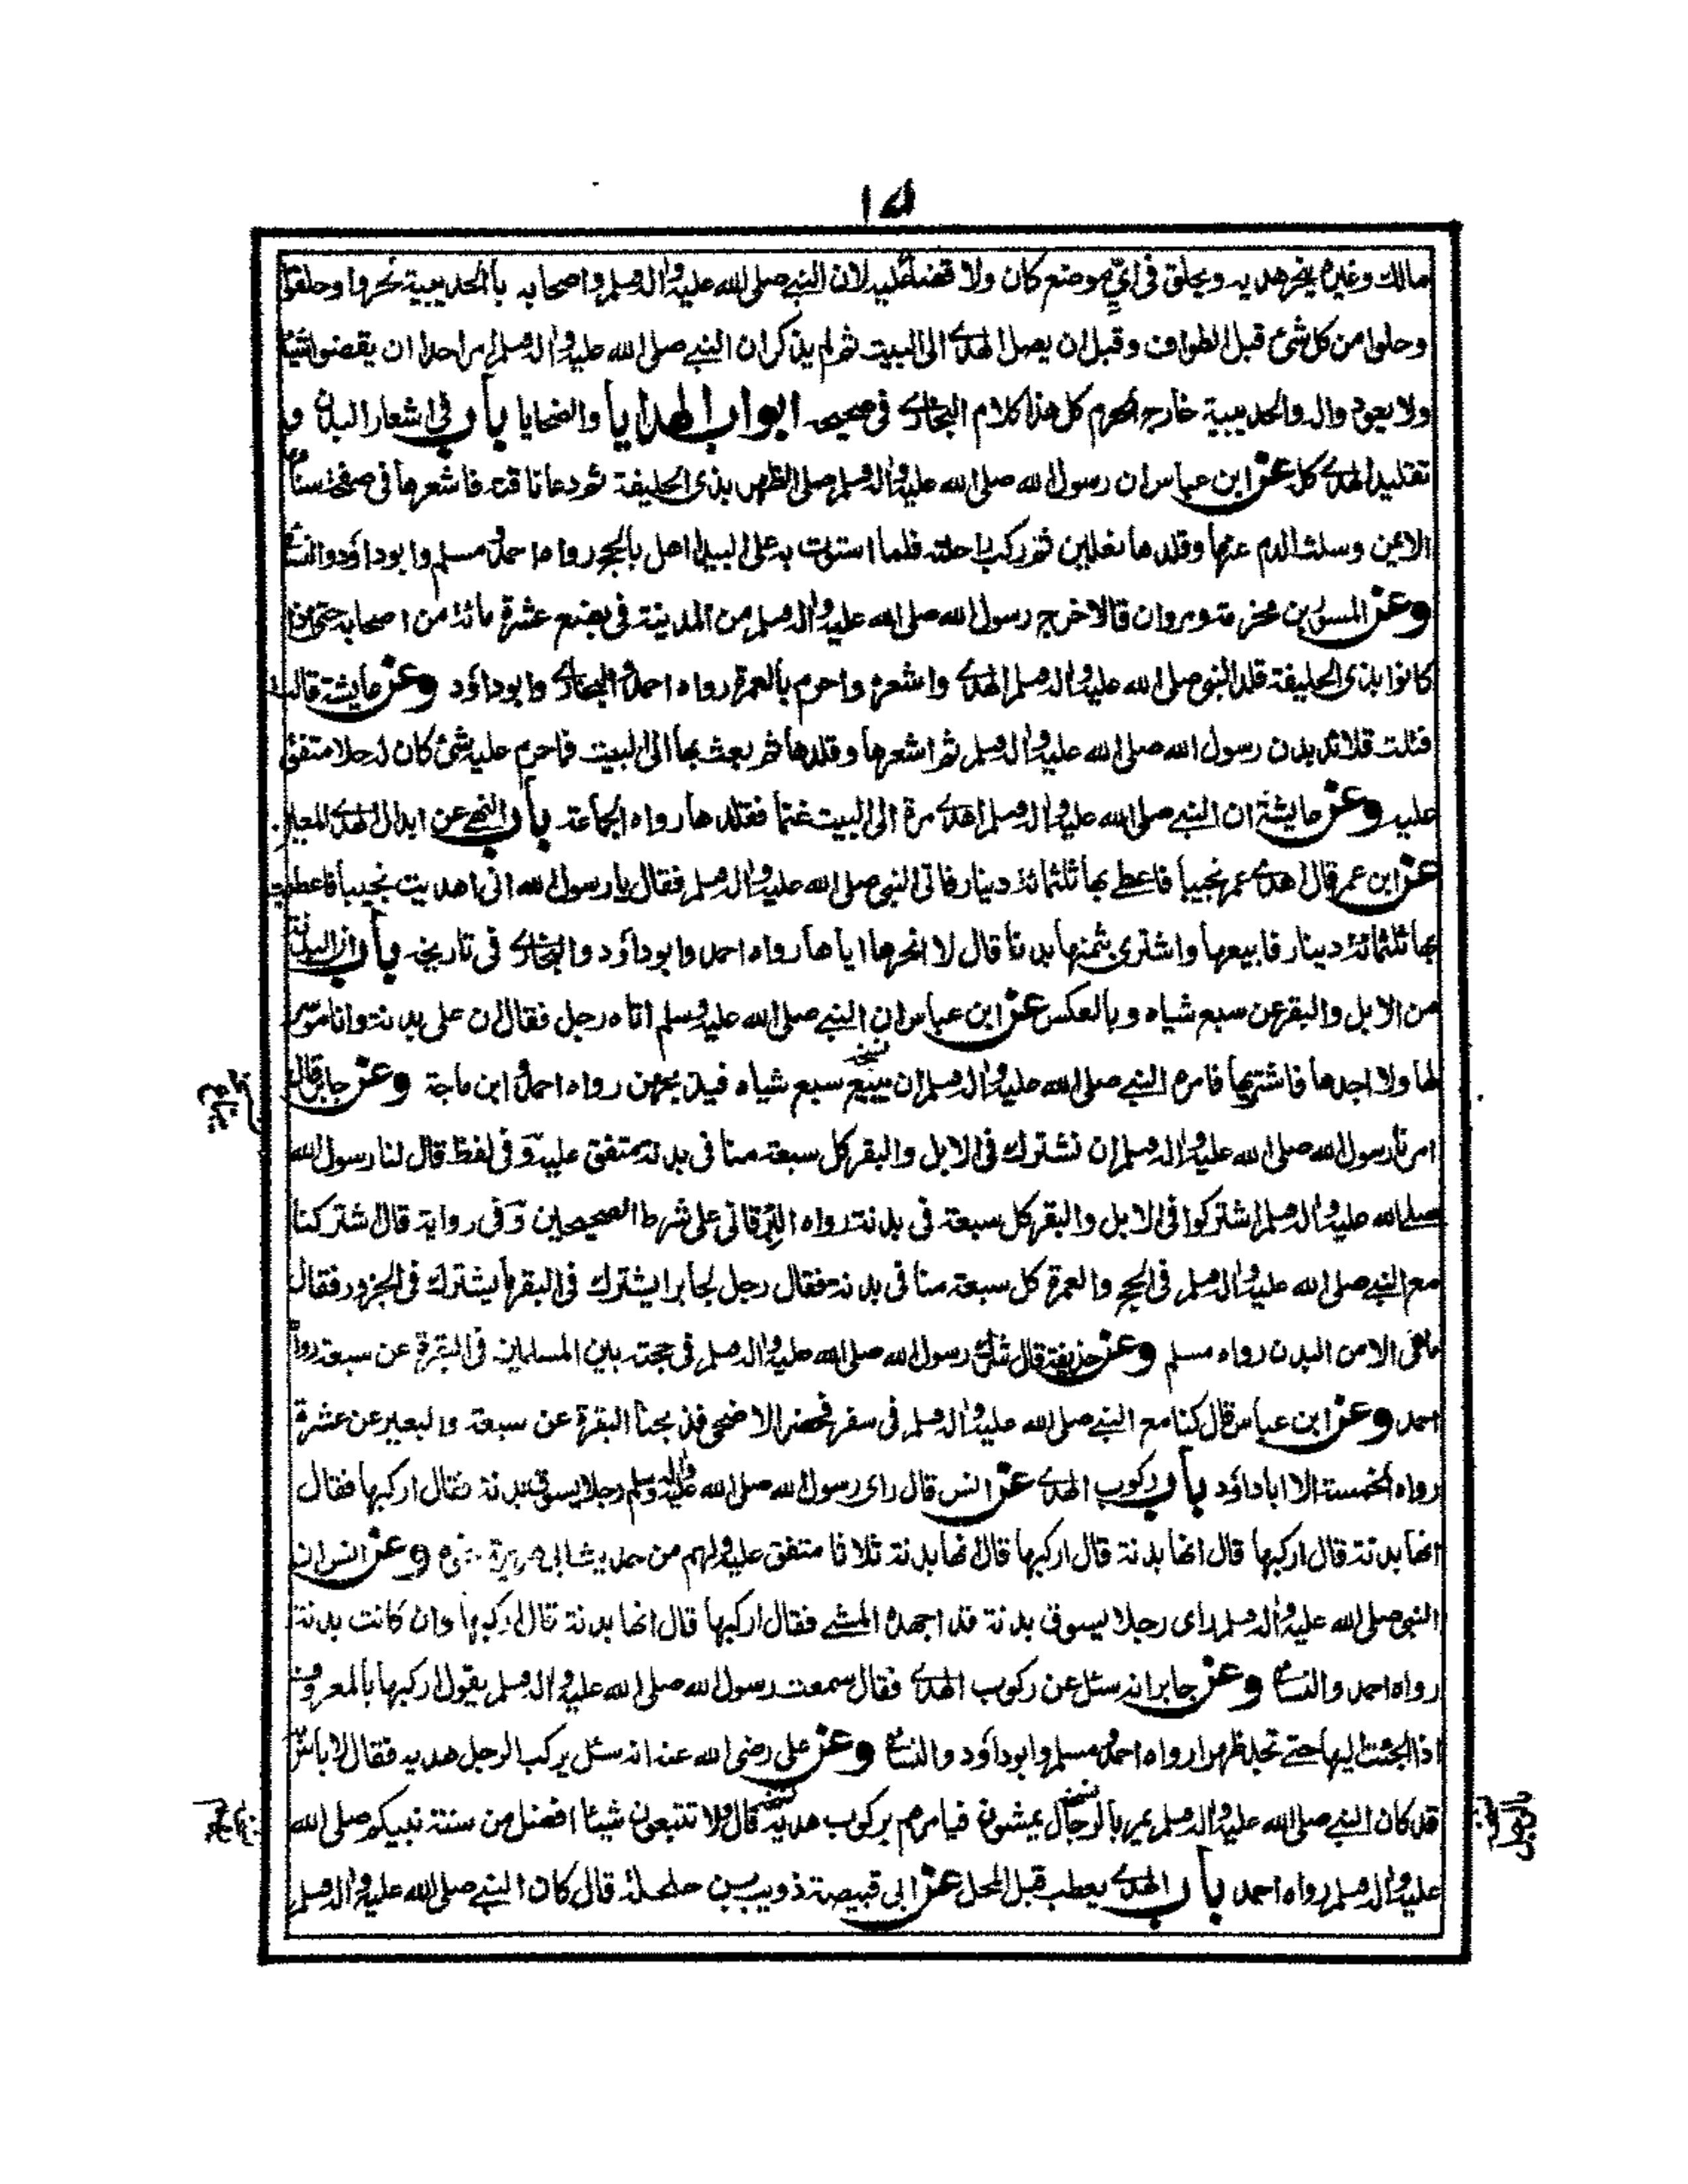 ١٥
مالك وغيره ينحر هديه ويحلق في اي موضع كان ولا قضاء عليه لان النبي صلى الله عليه واله وسلم واصحابه بالحديبية نحروا وحلقوا
وحلوا من كل شئ قبل الطواف وقبل ان يصل الهدي الى البيت ثم لم يذكر ان النبي صلى الله عليه واله وسلم امر احدا ان يقضوا شيئا
ولا يعود واله والحديبية خارج الحرم كل هذا كلام البخاري في صحيحه ابواب الهدايا والضحايا باب في اشعار البدن و
تقليد الهدي كله عن ابن عباس ان رسول الله صلى الله عليه واله وسلم صلى الظهر بذي الحليفة ثم دعا ناقته فاشعرها في صفحة سنامها
الايمن وسلت الدم عنها وقلدها نعلين ثم ركب راحلته فلما استوت به على البيداء اهل بالحج رواه احمد ومسلم وابو داؤد والنسائي
وعن المسور بن مخرمة ومروان قالا خرج رسول الله صلى الله عليه واله وسلم من المدينة في بضع عشرة مائة من اصحابه حتى اذا
كانوا بذي الحليفة قلد النبي صلى الله عليه واله وسلم الهدي واشعره واحرم بالعمرة رواه احمد والبخاري وابو داؤد وعن عايشة قالت
فتلت قلائد بدن رسول الله صلى الله عليه واله وسلم ثم اشعرها وقلدها ثم بعث بها الى البيت فما حرم عليه شئ كان له حلا متفق
عليه وعن عايشة ان النبي صلى الله عليه واله وسلم اهدى مرة الى البيت غنما فقلدها رواه الجماعة باب النهي عن ابدال الهدي المعين
عن ابن عمر قال اهدى عمر نجيبا فاعطي بها ثلثمائة دينار فاتى النبي صلى الله عليه واله وسلم فقال يا رسول الله اني اهديت نجيبا فاعطيت
بها ثلثمائة دينار فابيعها واشتري بثمنها بدنا قال لا انحرها اياها رواه احمد وابو داؤد والبخاري في تاريخه باب ان البدنة
من الابل والبقر عن سبع شياه وبالعكس عن ابن عباس ان النبي صلى الله عليه وسلم اتاه رجل فقال ان علي بدنة وانا موسر
لها ولا اجدها فاشتريها فامره النبي صلى الله عليه واله وسلم ان يبيع سبع شياه فيذبحهن رواه احمد وابن ماجة وعن جابر قال
امرنا رسول الله صلى الله عليه واله وسلم ان نشترك في الابل والبقر كل سبعة منا في بدنة متفق عليه وفي لفظ قال لنا رسول الله
صلى الله عليه واله وسلم اشتركوا في الابل والبقر كل سبعة في بدنة رواه البرقاني على شرط الصحيحين وفي رواية قال اشتركنا
مع النبي صلى الله عليه واله وسلم في الحج والعمرة كل سبعة منا في بدنة فقال رجل لجابر ايشترك في البقر ما يشترك في الجزور فقال
ما هي الا من البدن رواه مسلم وعن حذيفة قال شرك رسول الله صلى الله عليه واله وسلم في حجته بين المسلمين في البقرة عن سبعة رواه
احمد وعن ابن عباس قال كنا مع النبي صلى الله عليه واله وسلم في سفر فحضر الاضحى فذبحنا البقرة عن سبعة والبعير عن عشرة
رواه الخمسة الا ابا داؤد باب ركوب الهدي عن انس قال راى رسول الله صلى الله عليه واله وسلم رجلا يسوق بدنة فقال اركبها فقال
انها بدنة قال اركبها قال انها بدنة قال اركبها قال انها بدنة ثلاثا متفق عليه ولهم من حديث ابي هريرة نحوه وعن انس ان
النبي صلى الله عليه واله وسلم راى رجلا يسوق بدنة قد اجهده المشي فقال اركبها قال انها بدنة قال اركبها وان كانت بدنة
رواه احمد والنسائي وعن جابر انه سئل عن ركوب الهدي فقال سمعت رسول الله صلى الله عليه واله وسلم يقول اركبها بالمعروف
اذا الجئت اليها حتى تجد ظهرا رواه احمد ومسلم وابو داؤد والنسائي وعن علي رضي الله عنه انه سئل يركب الرجل هديه فقال لا باس
قد كان النبي صلى الله عليه واله وسلم يمر بالرجال يمشون فيامرهم بركوب هديه قال ولا تتبعون شيئا افضل من سنة نبيكم صلى الله
عليه واله وسلم رواه احمد باب الهدي يعطب قبل المحل عن ابي قبيصة ذويب بن حلحلة قال كان النبي صلى الله عليه واله وسلم